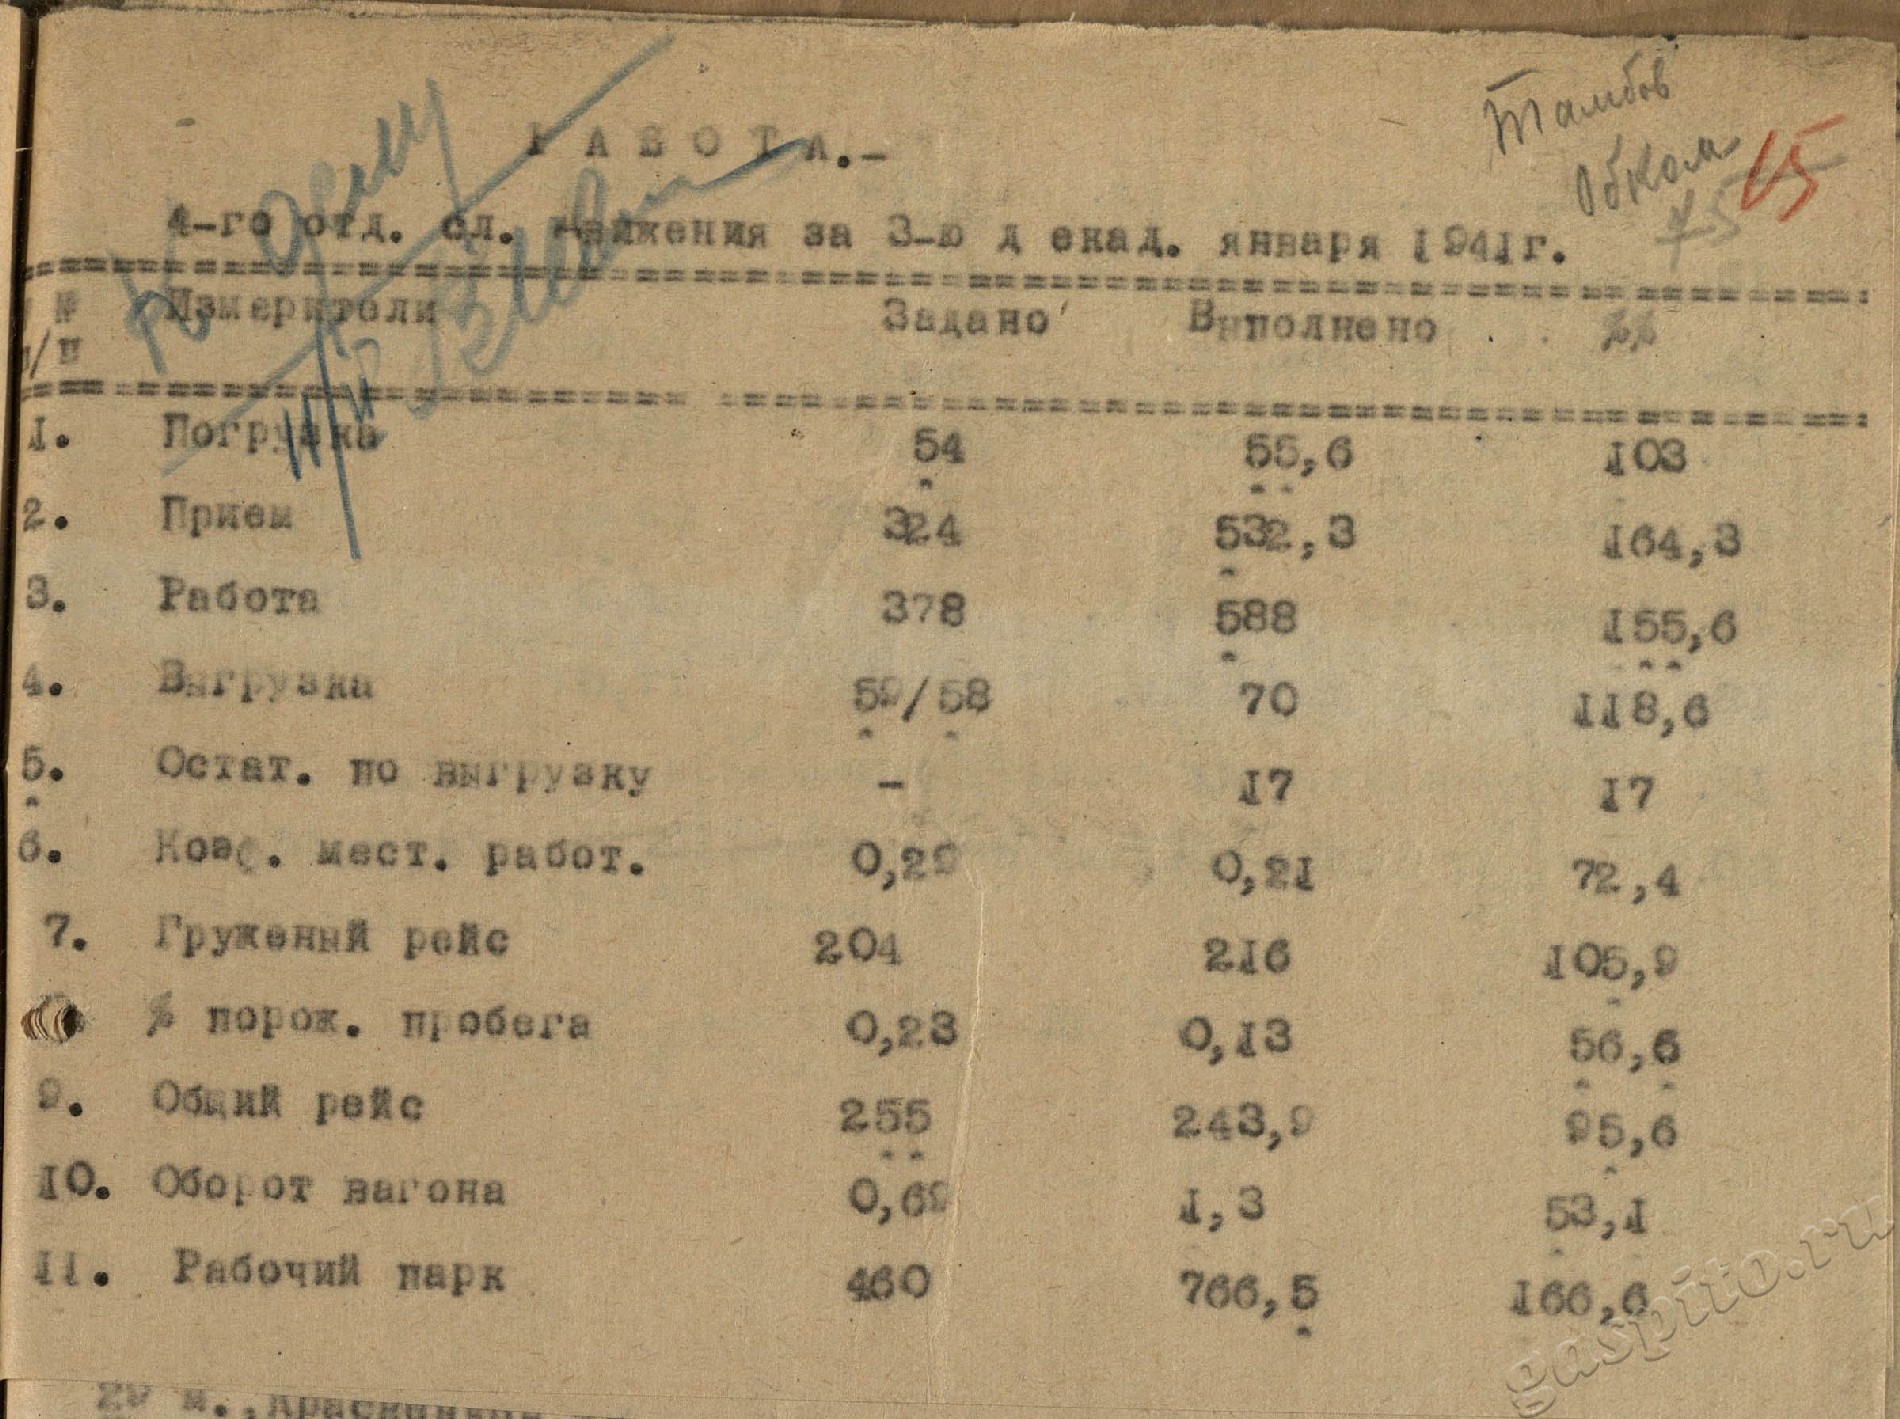 Тамбов
Обком
15
75
К делу
РАБОТА.-
4-го отд. сл. движения за 3-ю д екад. января 1941г.
№ п/п Измерители Задано Выполнено %%
1. Погрузка 54 55,6 103
2. Прием 324 532,3 164,3
3. Работа 378 588 155,6
4. Выгрузка 59/58 70 118,6
5. Остат. по выгрузку - 17 17
6. Коэф. мест. работ. 0,29 0,21 72,4
7. Груженый рейс 204 216 105,9
% порож. пробега 0,23 0,13 56,6
9. Общий рейс 255 243,9 95,6
10. Оборот вагона 0,69 1,3 53,1
11. Рабочий парк 460 766,5 166,6
gaspito.ru